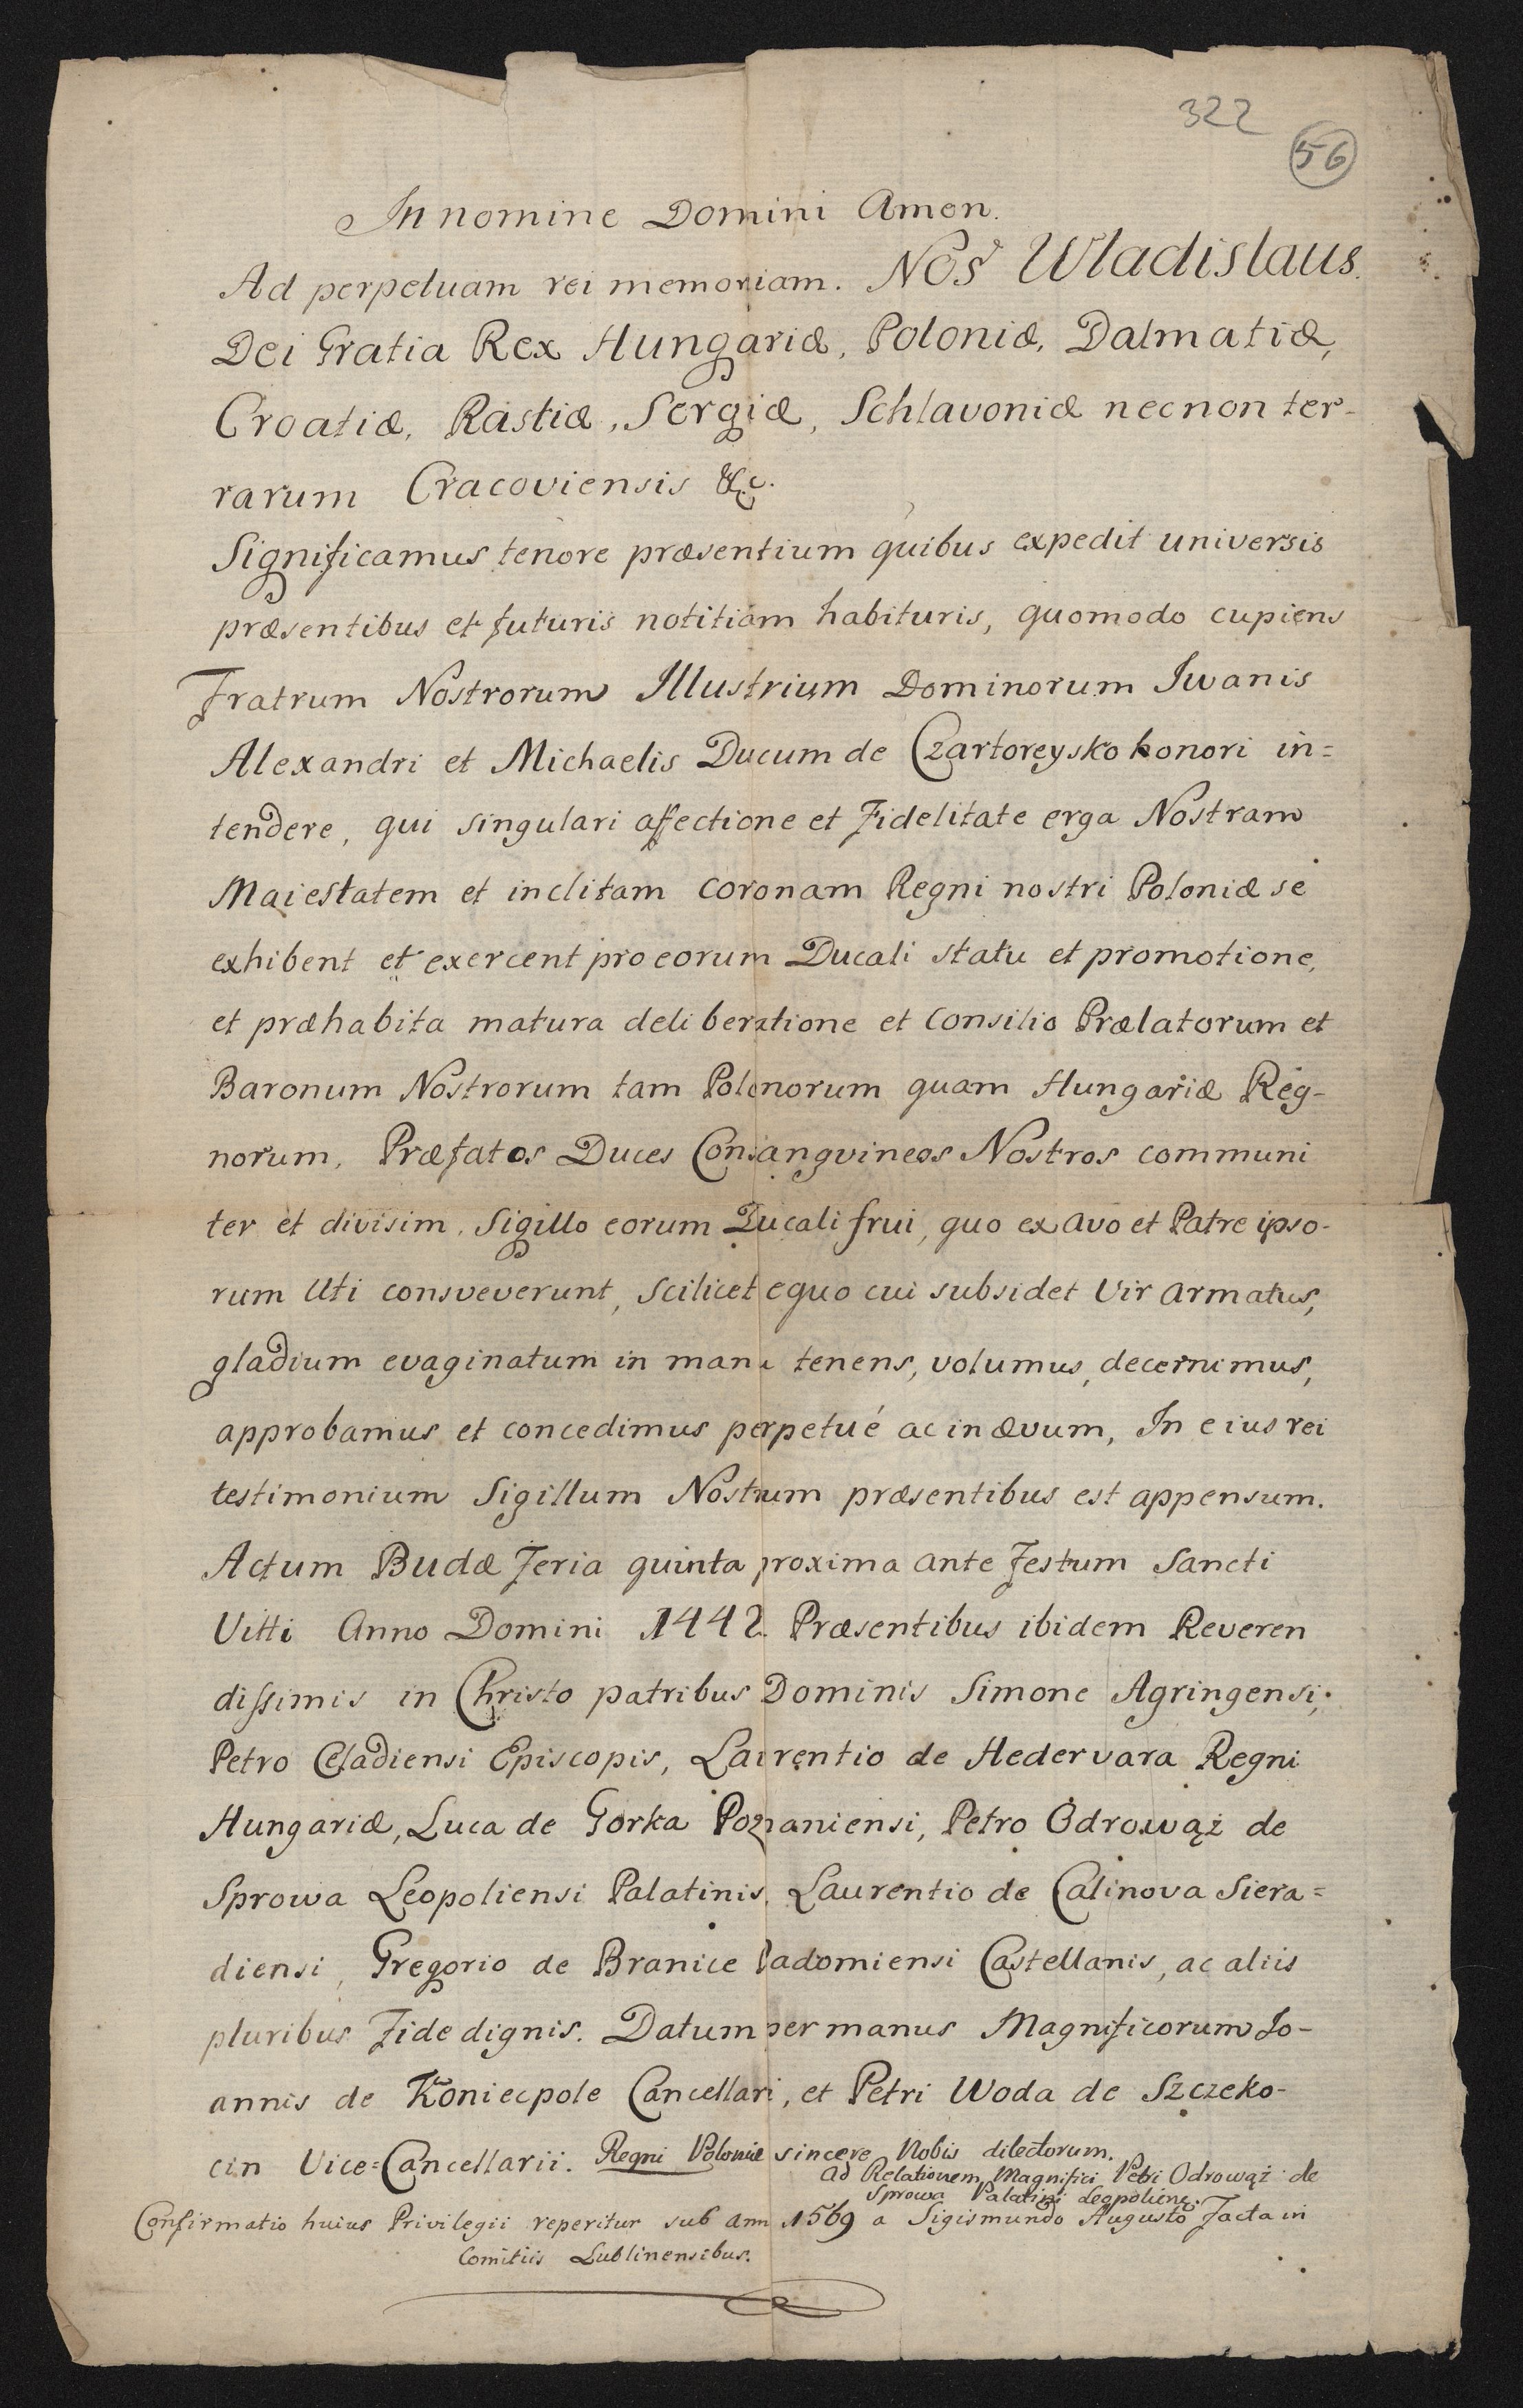 322
56
In nomine Domini Amen.
Ad perpetuam rei memoriam. Nos Wladislaus.
Dei Gratia Rex Hungariæ, Poloniæ, Dalmatiæ,
Croatiæ, Rastiæ, Sergiæ, Schlavoniæ necnon ter-
rarum Cracoviensis &c.
Significamus tenore præsentium quibus expedit universis
præsentibus et futuris notitiam habituris, quomodo cupiens
Fratrum Nostrorum Illustrium Dominorum Iwanis
Alexandri et Michaelis Ducum de Czartoreysko honori in=
tendere, qui singulari affectione et Fidelitate erga Nostram
Maiestatem et inclitam coronam Regni nostri Poloniæ se
exhibent et exercent pro eorum Ducali statu et promotione,
et præhabita matura deliberatione et Consilio Prælatorum et
Baronum Nostrorum tam Polonorum quam Hungariæ Reg-
norum, Præfatos Duces Consangvineos Nostros communi
ter et divisim, Sigillo eorum Ducali frui, quo ex Avo et Patre ipso-
rum Uti consveverunt, scilicet equo cui subsidet Vir Armatus,
gladium evaginatum in manu tenens, volumus, decernimus,
approbamus et concedimus perpetué ac in ævum, In eius rei
testimonium Sigillum Nostrum præsentibus est appensum.
Actum Budæ Feria quinta proxima ante Festum Sancti
Vitti Anno Domini 1442. Præsentibus ibidem Reveren
dissimis in Christo patribus Dominis Simone Agringensi,
Petro Cladiensi Episcopis, Laurentio de Hedervara Regni
Hungariæ, Luca de Gorka Poznaniensi, Petro Odrowąż de
Sprowa Leopoliensi Palatinis, Laurentio de Calinova Siera=
diensi, Gregorio de Branice Radomiensi Castellanis, ac aliis
pluribus Fide dignis. Datum per manus Magnificorum Io-
annis de Koniecpole Cancellari, et Petri Woda de Szczeko-
cin Vice=Cancellarii. Regni Poloniæ sincere Nobis dilectorum.
Ad Relationem Magnifici Petri Odrowąż de
Sprowa Palatini Leopoliens.
Confirmatio huius Privilegii reperitur sub Ann 1569 a Sigismundo Augusto Facta in
Comitiis Lublinensibus.